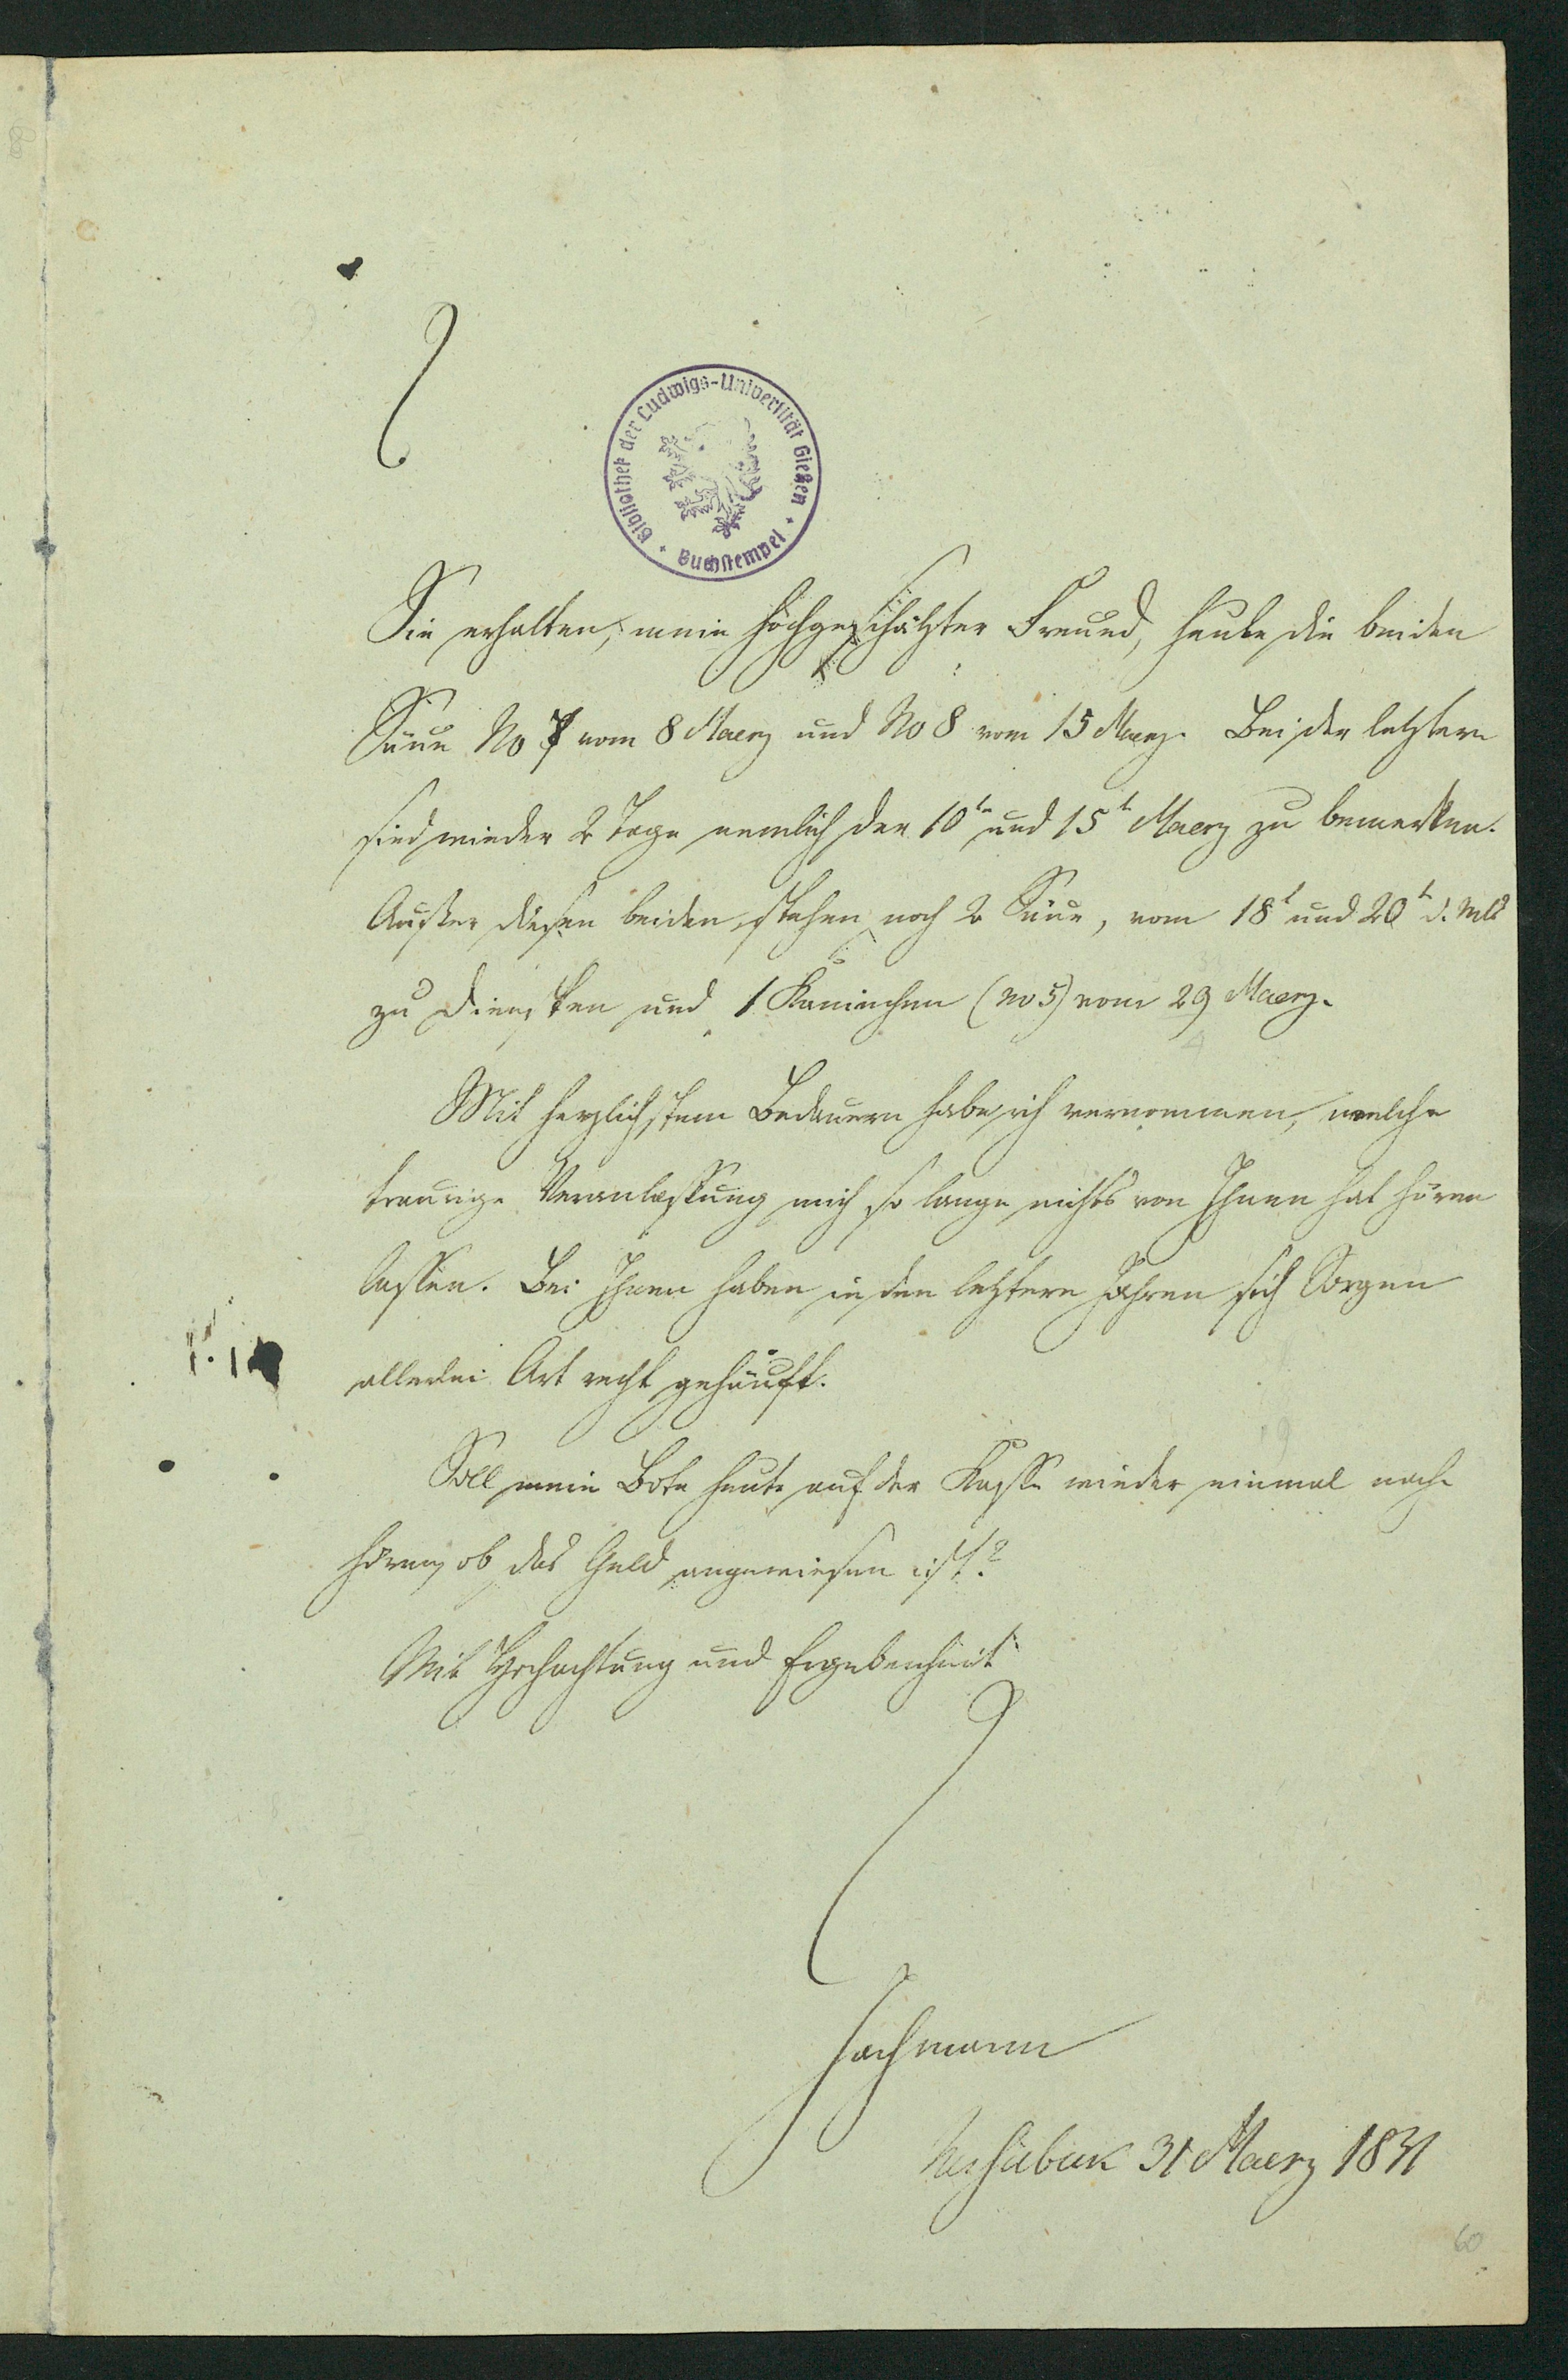 Bibliothek der Ludwigs-Universität Gießen + Buchstempel +
Sie erhalten, mein hochgeschätzter Freund, heute die beiden
Säue No 7 vom 8 Maerz und No 8 vom 15 Maerz. Bei der letztern
sind wieder 2 Tage nemlich der 10te und 15t Maerz zu bemerken.
Außer diesen beiden stehen noch 2 Säue, vom 18t und 20t d. Mts
zu Diensten und 1 Kaninchen (No 5) vom 29 Maerz.
Mit herzlichstem Bedauern habe ich vernommen, welche
traurige Veranlassung mich so lange nichts von Ihnen hat hören
lassen. Bei Ihnen haben in den letztern Jahren sich Sorgen
allerlei Art recht gehäuft.
Soll mein Bote heute auf der Kasse wieder einmal nach
hören, ob das Geld angewiesen ist?
Mit Hochachtung und Ergebenheit
31 Maerz 1831
60